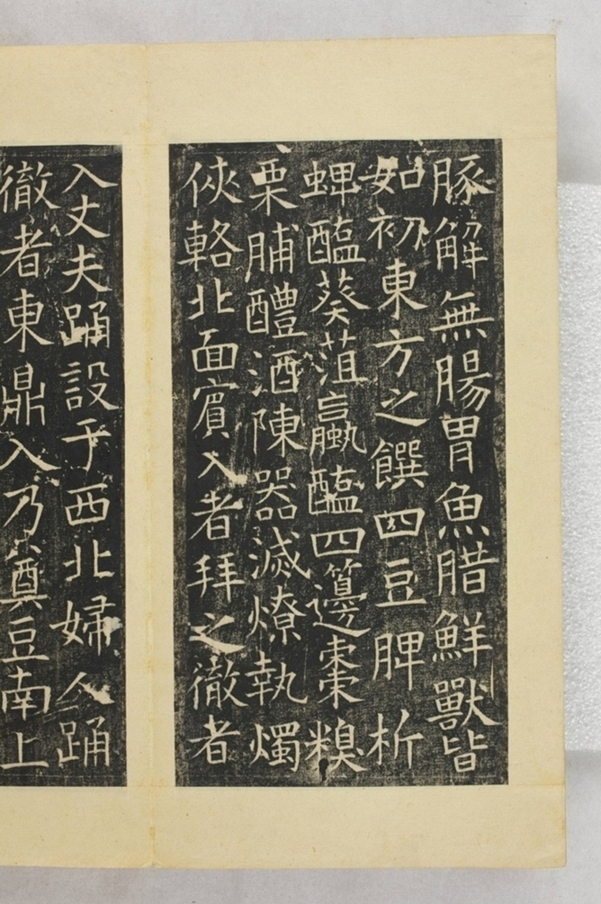 豚解無腸胃魚腊鮮獸皆
如初東方之饌四豆脾析
蜱醢葵菹蠃醢四籩棗糗
栗脯醴酒陳器滅燎執燭
俠輅北面賓入者拜之徹者
入丈夫踊設于西北婦人踊
徹者東鼎入乃奠豆南上